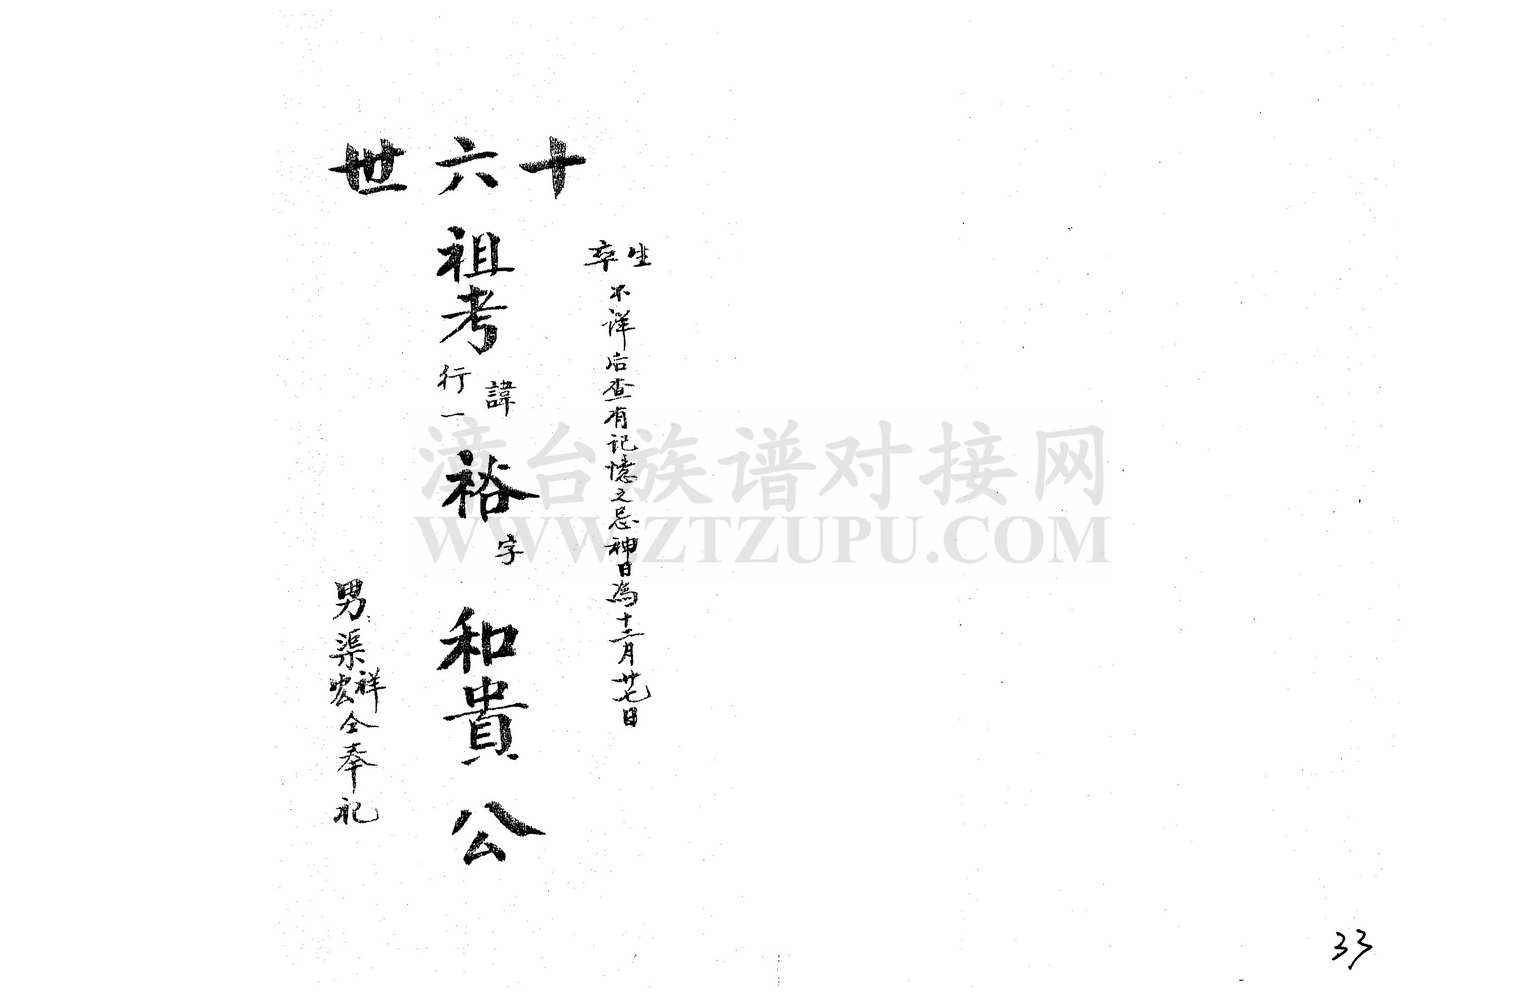 十六世
生卒不详后查有记憶之忌神日為十二月廿七日
祖考諱行一裕字和貴公
男渠祥宏仝奉祀
漳台族谱对接网
WWW.ZTZUPU.COM
33